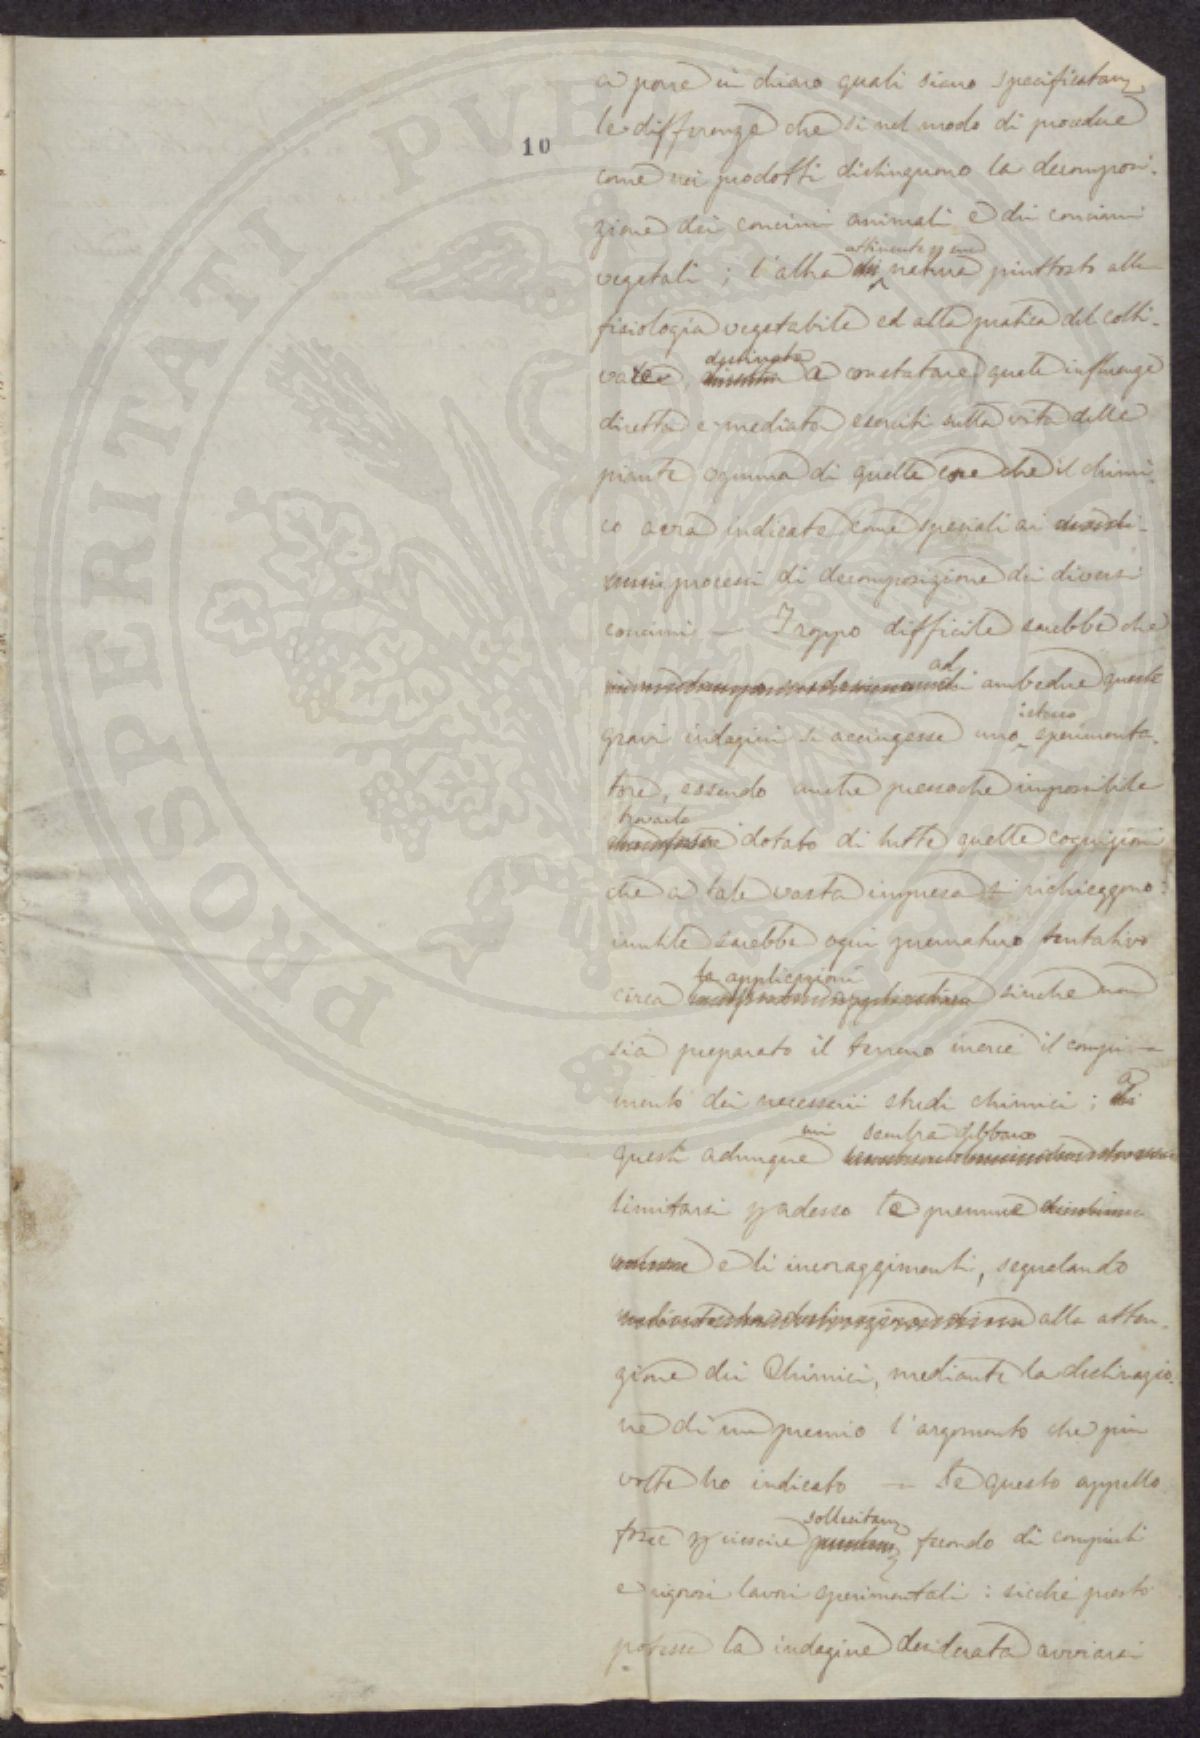 10
a porre in chiaro quali siano specificatam
le differenze che sì nel modo di procedere
come nei prodotti distinguono la decomposi-
zione dei concimi animali e dei concimi
vegetali ; l'altra di natura piuttosto alla
fisiologia vegetabile ed alla pratica del colti-
vatore,
destinata
a constatare quale influenza
diretta e mediata eserciti sulla vita delle
piante ognuna di quelle cose che il chimi-
co avrà indicate come speciali ai
processi di decomposizione dei diversi
concimi — Troppo difficile sarebbe che
ad
ambedue queste
gravi indagini si accingesse uno
istesso
sperimenta-
tore, essendo anche pressoché impossibile
trovarlo
dotato di tutte quelle cognizioni
che a tale vasta impresa si richieggono:
inutile sarebbe ogni prematuro tentativo
circa
le applicazioni
sinché non
sia preparato il terreno mercé il compi-
mento dei necessarii studi chimici ; a
questi adunque
mi sembra debbano
limitarsi per adesso le premure
e li incoraggimenti, segnalando
alla atten-
zione dei Chimici, mediante la destinazio-
ne di un premio l'argomento che più
volte ho indicato — Se questo appello
fosse per riescire
sollecitam
fecondo di compiuti
e rigorosi lavori sperimentali : sicché presto
potesse la indagine desiderata avviarsi
PROSPERITATI PVBLICAE